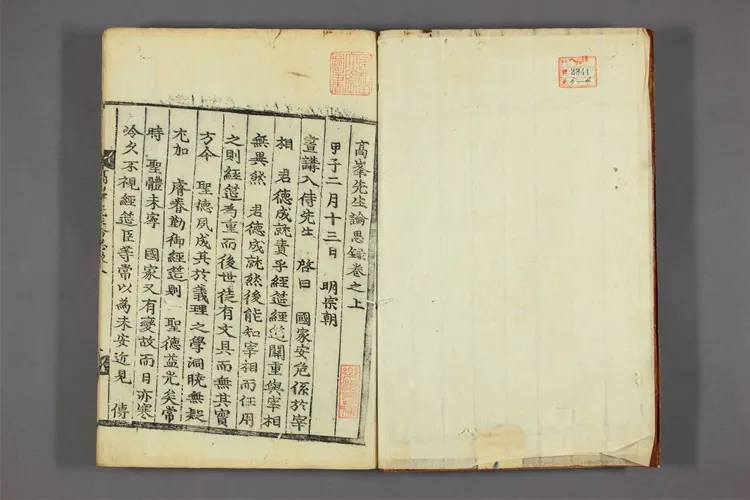 高峯先生論思録卷之上
甲子二月十三日 明宗朝
晝講入侍先生 啓曰 國家安危係於宰
相 君德成就責乎經筵經筵關重與宰相
無異然 君德成就然後能知宰相而任用
之則經筵為重而後世徒有文具而無其實
方今 聖德夙成其於義理之學洞曉無疑
尤加 睿眷勤御經筵則 聖德益光矣常
時 聖體未寧 國家又有變故而日亦寒
冷久不視經筵臣等常以為未安近見 傳
2341